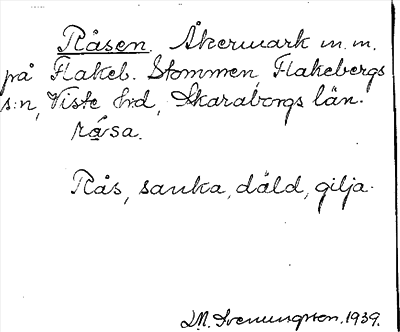 Råsen. Åkermark m.m.
på Flakeb. Stommen, Flakebergs
s:n, Viste hd, Skaraborgs län.
råsa.
Rås, sanka, däld, gilja.
D.N. Svenungsson. 1939.